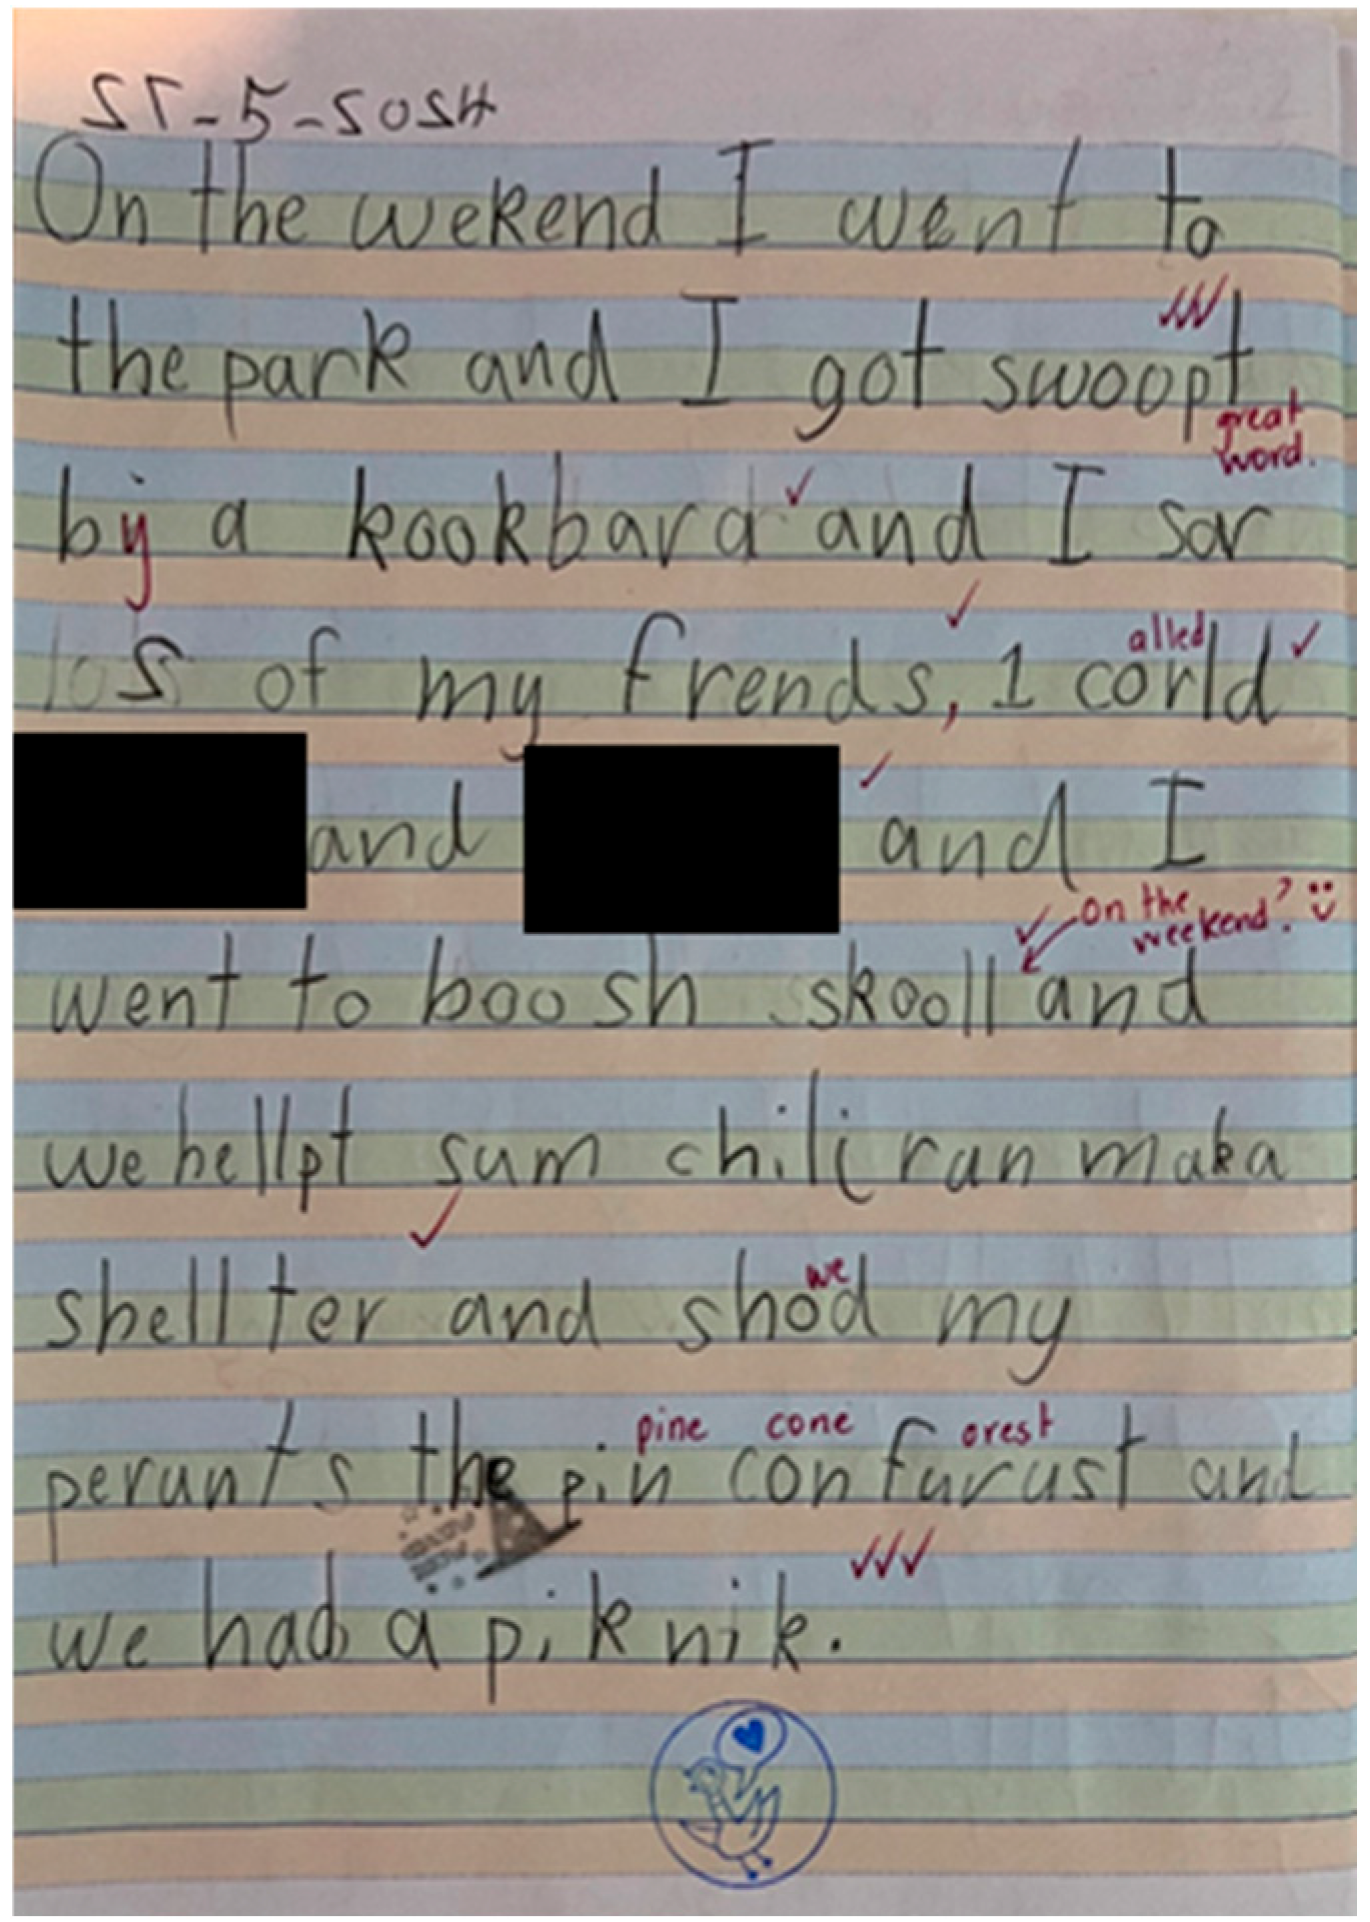 27-5-2024
On the wekend I went to
the park and I got swoopt
great
word.
by a kookbara and I sor
alled
los of my frends, I corld
and and I
on the
weekend?
went to boosh skooll and
we hellpt sum chiliran maka
we
shellter and shod my
pine cone orest
perunts the pin con furust and
we had a piknik.